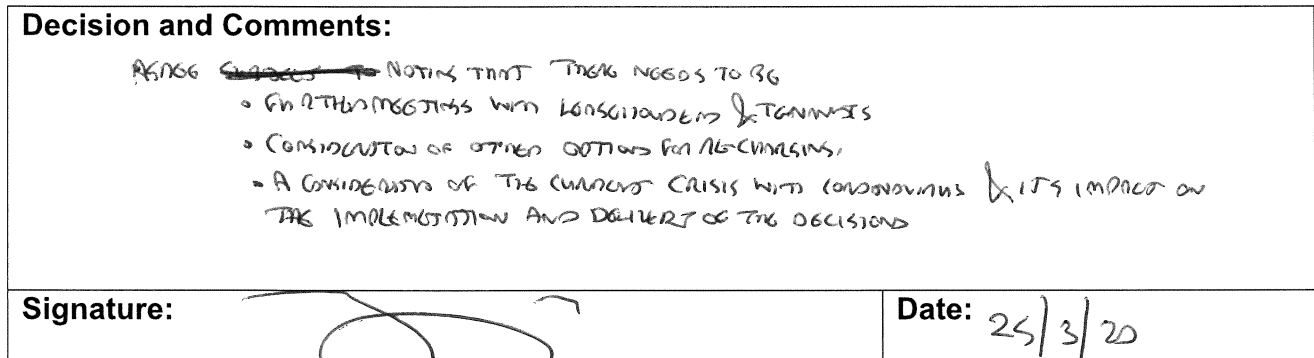 Decision and Comments:
AGREE SUBJECT TO NOTING THAT THERE NEEDS TO BE
• FURTHER MEETINGS WITH LEASEHOLDERS & TENANTS
• CONSIDERATION OF OTHER OPTIONS FOR RE-CHARGING.
• A CONSIDERATION OF THE CURRENT CRISIS WITH CORONAVIRUS & ITS IMPACT ON
THE IMPLEMENTATION AND DELIVERY OF THE DECISIONS
Signature:
Date: 25/3/20